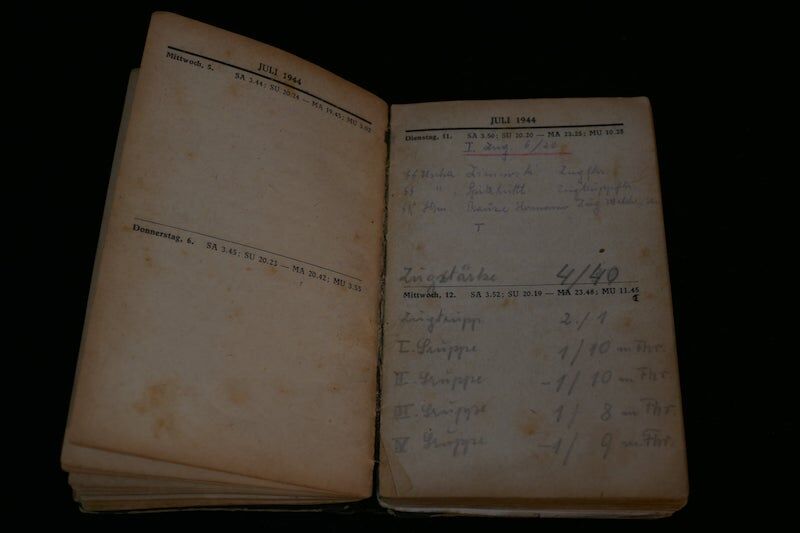 JULI 1944
Mittwoch, 5.
SA 3.44; SU 20.24 — MA 19.45; MU 3.02
Donnerstag, 6. SA 3.45; SU 20.23 — MA 20.42; MU 3.55
JULI 1944
Dienstag, 11. SA 3.50; SU 20.20 — MA 23.25; MU 10.28
I. Zug
Zugfhr.
Hermann Zug
Zugstärke 4/40
Mittwoch, 12. SA 3.52; SU 20.19 — MA 23.48; MU 11.45
Zugtrupp 2/1
I. Gruppe 1/10 m Fhr.
II. Gruppe -1/10 m Fhr.
III. Gruppe 1/8 m Fhr.
IV. Gruppe -1/9 m Fhr.